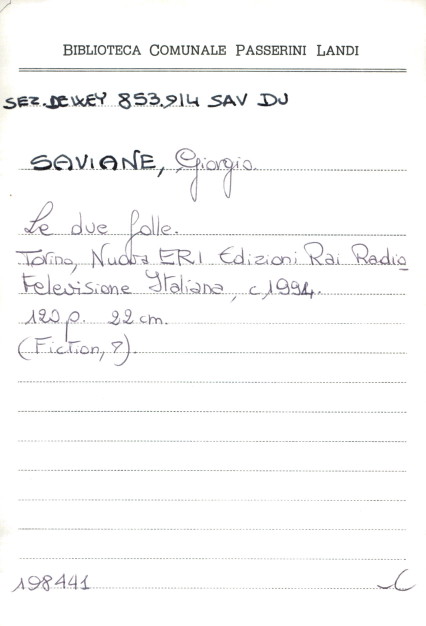 BIBLIOTECA COMUNALE PASSERINI LANDI
SEZ. DEWEY 853.914 SAV DU
SAVIANE, Giorgio.
Le due folle.
Torino, Nuova ERI Edizioni Rai Radio
televisione Italiana, c1994.
120 p. 22 cm.
(Fiction, 7).
198441